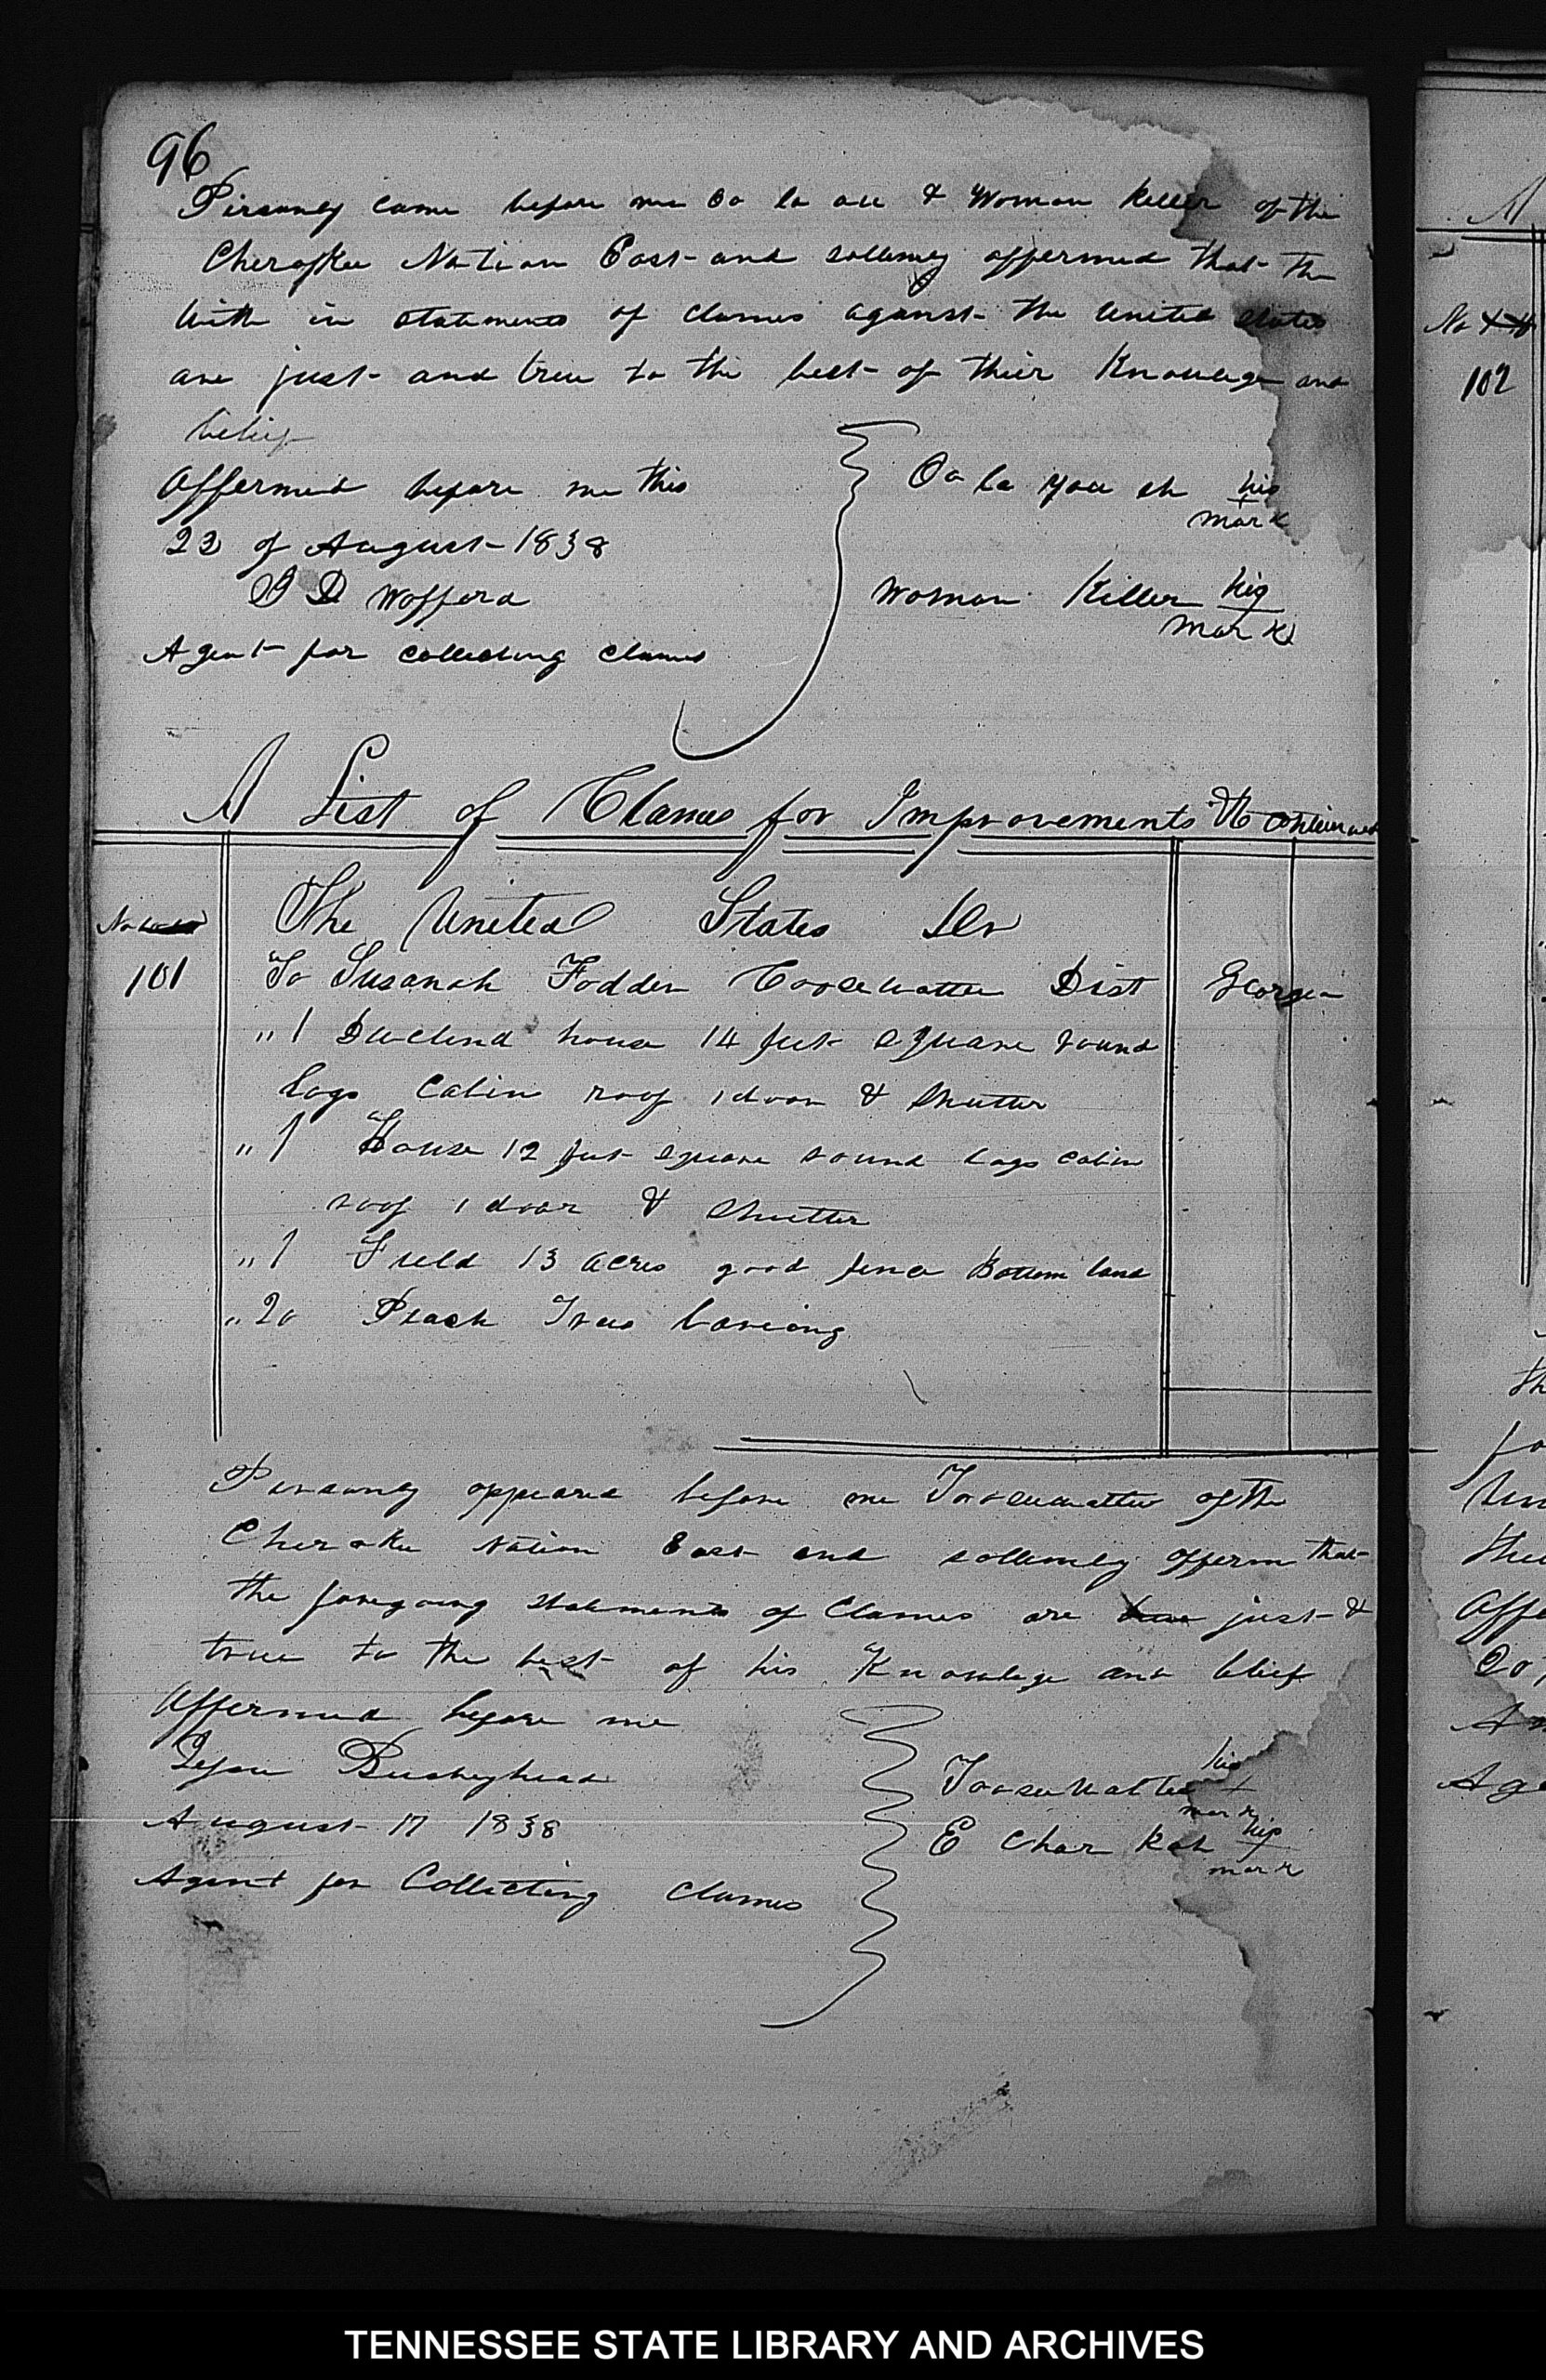 96
Personly came before me Oo la &amp; Woman Killer of the
Cherokee Nation East and sollemly affermed that the
with in statements of clames aganst the United States
are just and true to the best of thier Knowlege and
belief
Affermed before me this
22 of August 1838
J D Wofford
Agent for collecting clames
Oo la you eh his
mark
Woman Killer his
mark
A List of Clames for Improvements &amp;c continued
No
101
The United States Dr
To Susanah Fodder Coosewattee Dist Georgia
" 1 house 14 feet square round
logs Cabin roof 1 door & shutter
" 1 House 12 feet square round logs cabin
roof 1 door & shutter
" 1 Field 13 acres good fence Bottom land
" 20 Peach Trees
Personly appeared before me of the
Cherokee Nation East and sollemly afferm that
the foregoing statements of Clames are just &
true to the best of his Knowlege and belief
Affermed before me
Busheyhead
August 17 1838
Agent for Collecting clames
his
mark
E Char Kah his
mark
A
No
102
TENNESSEE STATE LIBRARY AND ARCHIVES